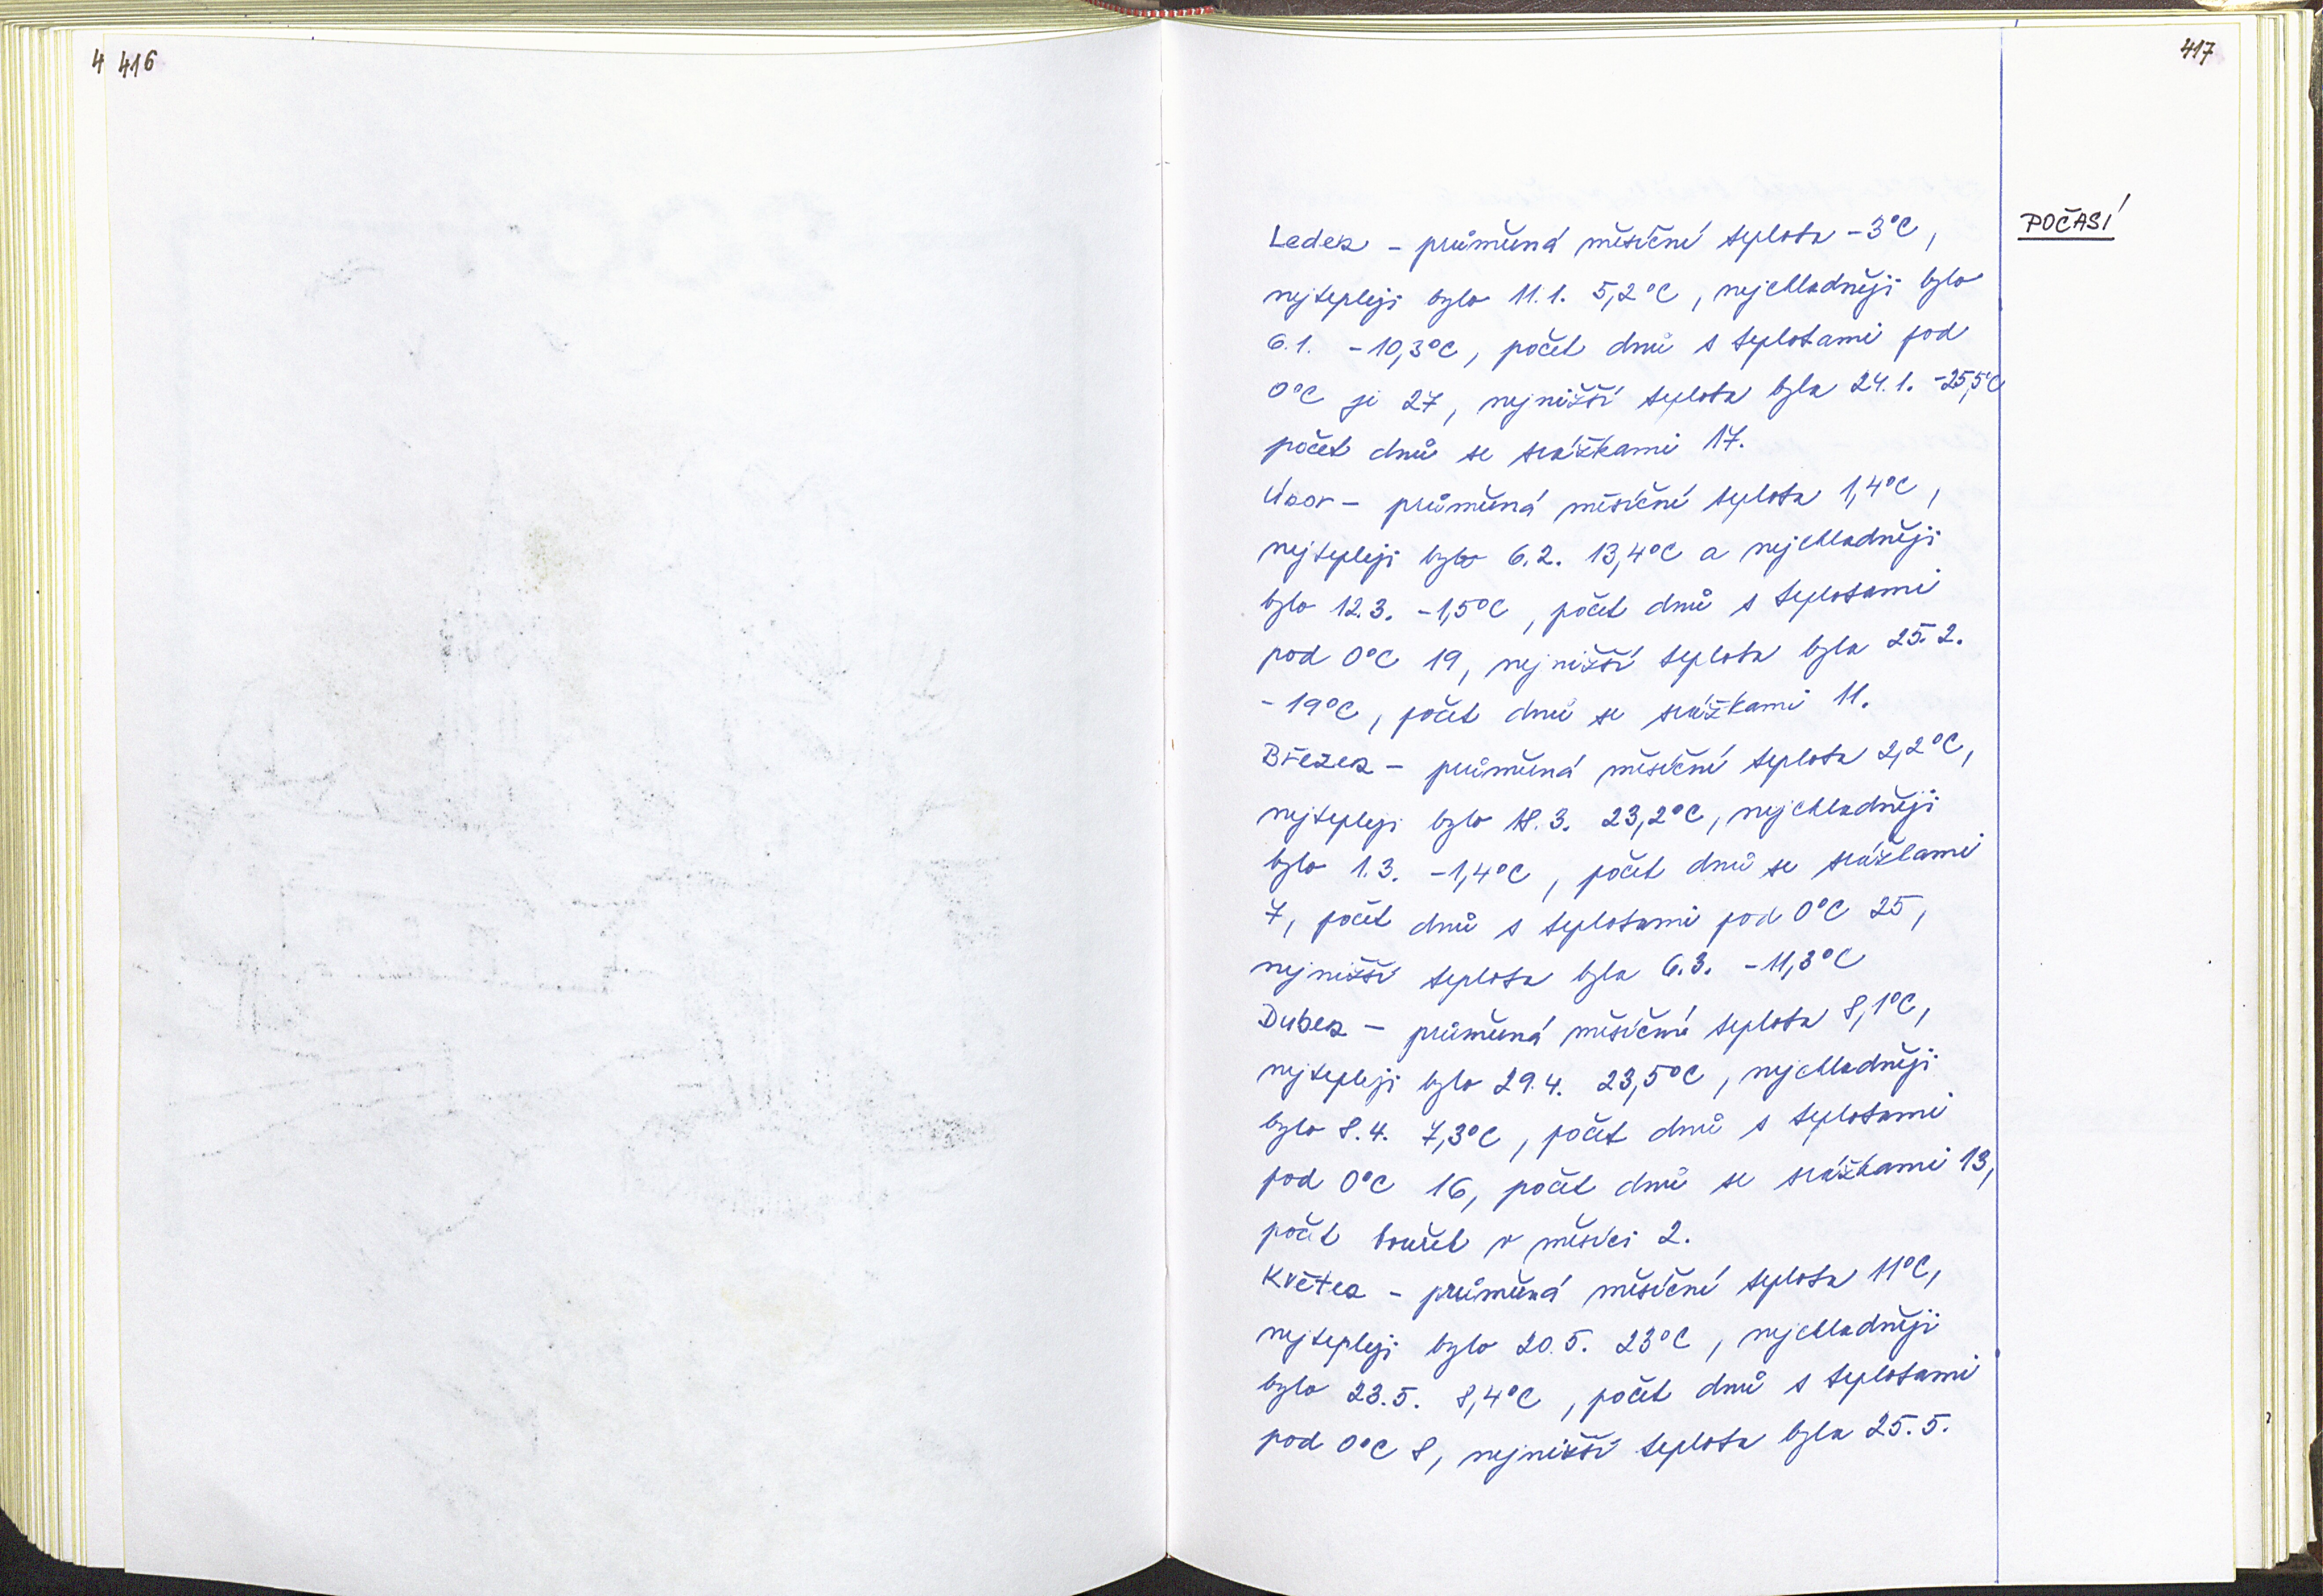 4 416
417
POČASÍ
Leden – průměrná měsíční teplota -3°C,
nejtepleji bylo 11.1. 5,2°C, nejchladněji bylo
6.1. -10,3°C, počet dnů s teplotami pod
0°C je 27, nejnižší teplota byla 24.1. -25,5°C
počet dnů se srážkami 17.
Únor – průměrná měsíční teplota 1,4°C,
nejtepleji bylo 6.2. 13,4°C a nejchladněji
bylo 12.3. -1,5°C, počet dnů s teplotami
pod 0°C 19, nejnižší teplota byla 25.2.
-19°C, počet dnů se srážkami 11.
Březen – průměrná měsíční teplota 2,2°C,
nejtepleji bylo 18.3. 23,2°C, nejchladněji
bylo 1.3. -1,4°C, počet dnů se srážkami
7, počet dnů s teplotami pod 0°C 25,
nejnižší teplota byla 6.3. -11,3°C
Duben – průměrná měsíční teplota 8,1°C,
nejtepleji bylo 29.4. 23,5°C, nejchladněji
bylo 8.4. 7,3°C, počet dnů s teplotami
pod 0°C 16, počet dnů se srážkami 13,
počet bouřek v měsíci 2.
Květen – průměrná měsíční teplota 11°C,
nejtepleji bylo 20.5. 23°C, nejchladněji
bylo 23.5. 8,4°C, počet dnů s teplotami
pod 0°C 8, nejnižší teplota byla 25.5.